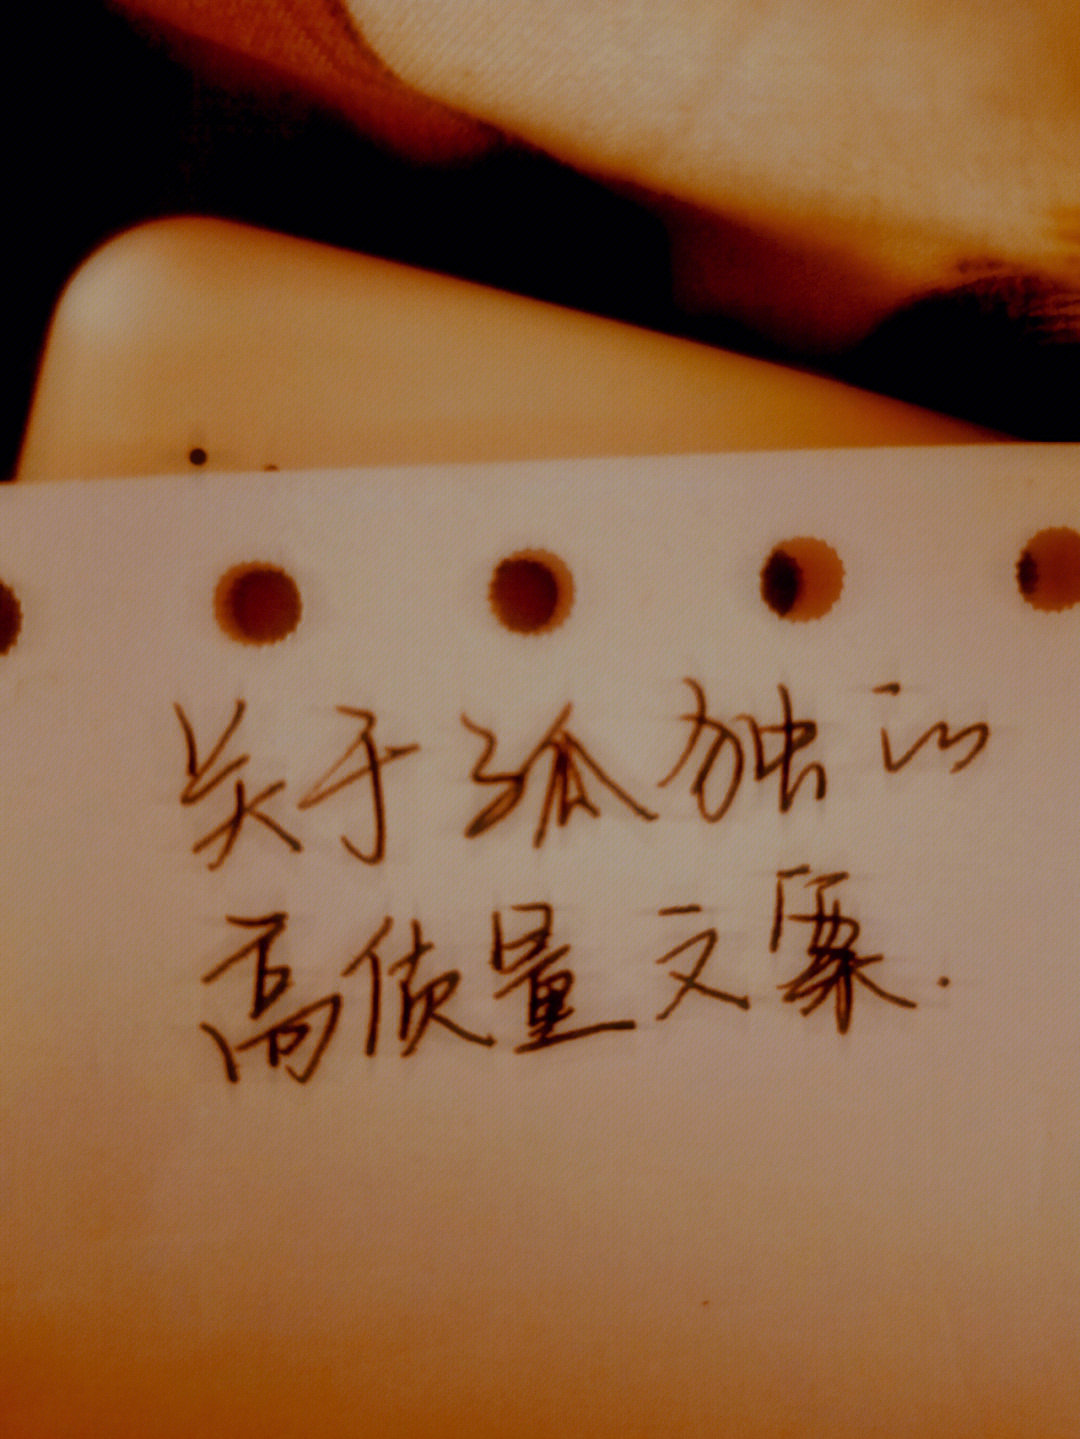 关于孤独的
高质量文案.